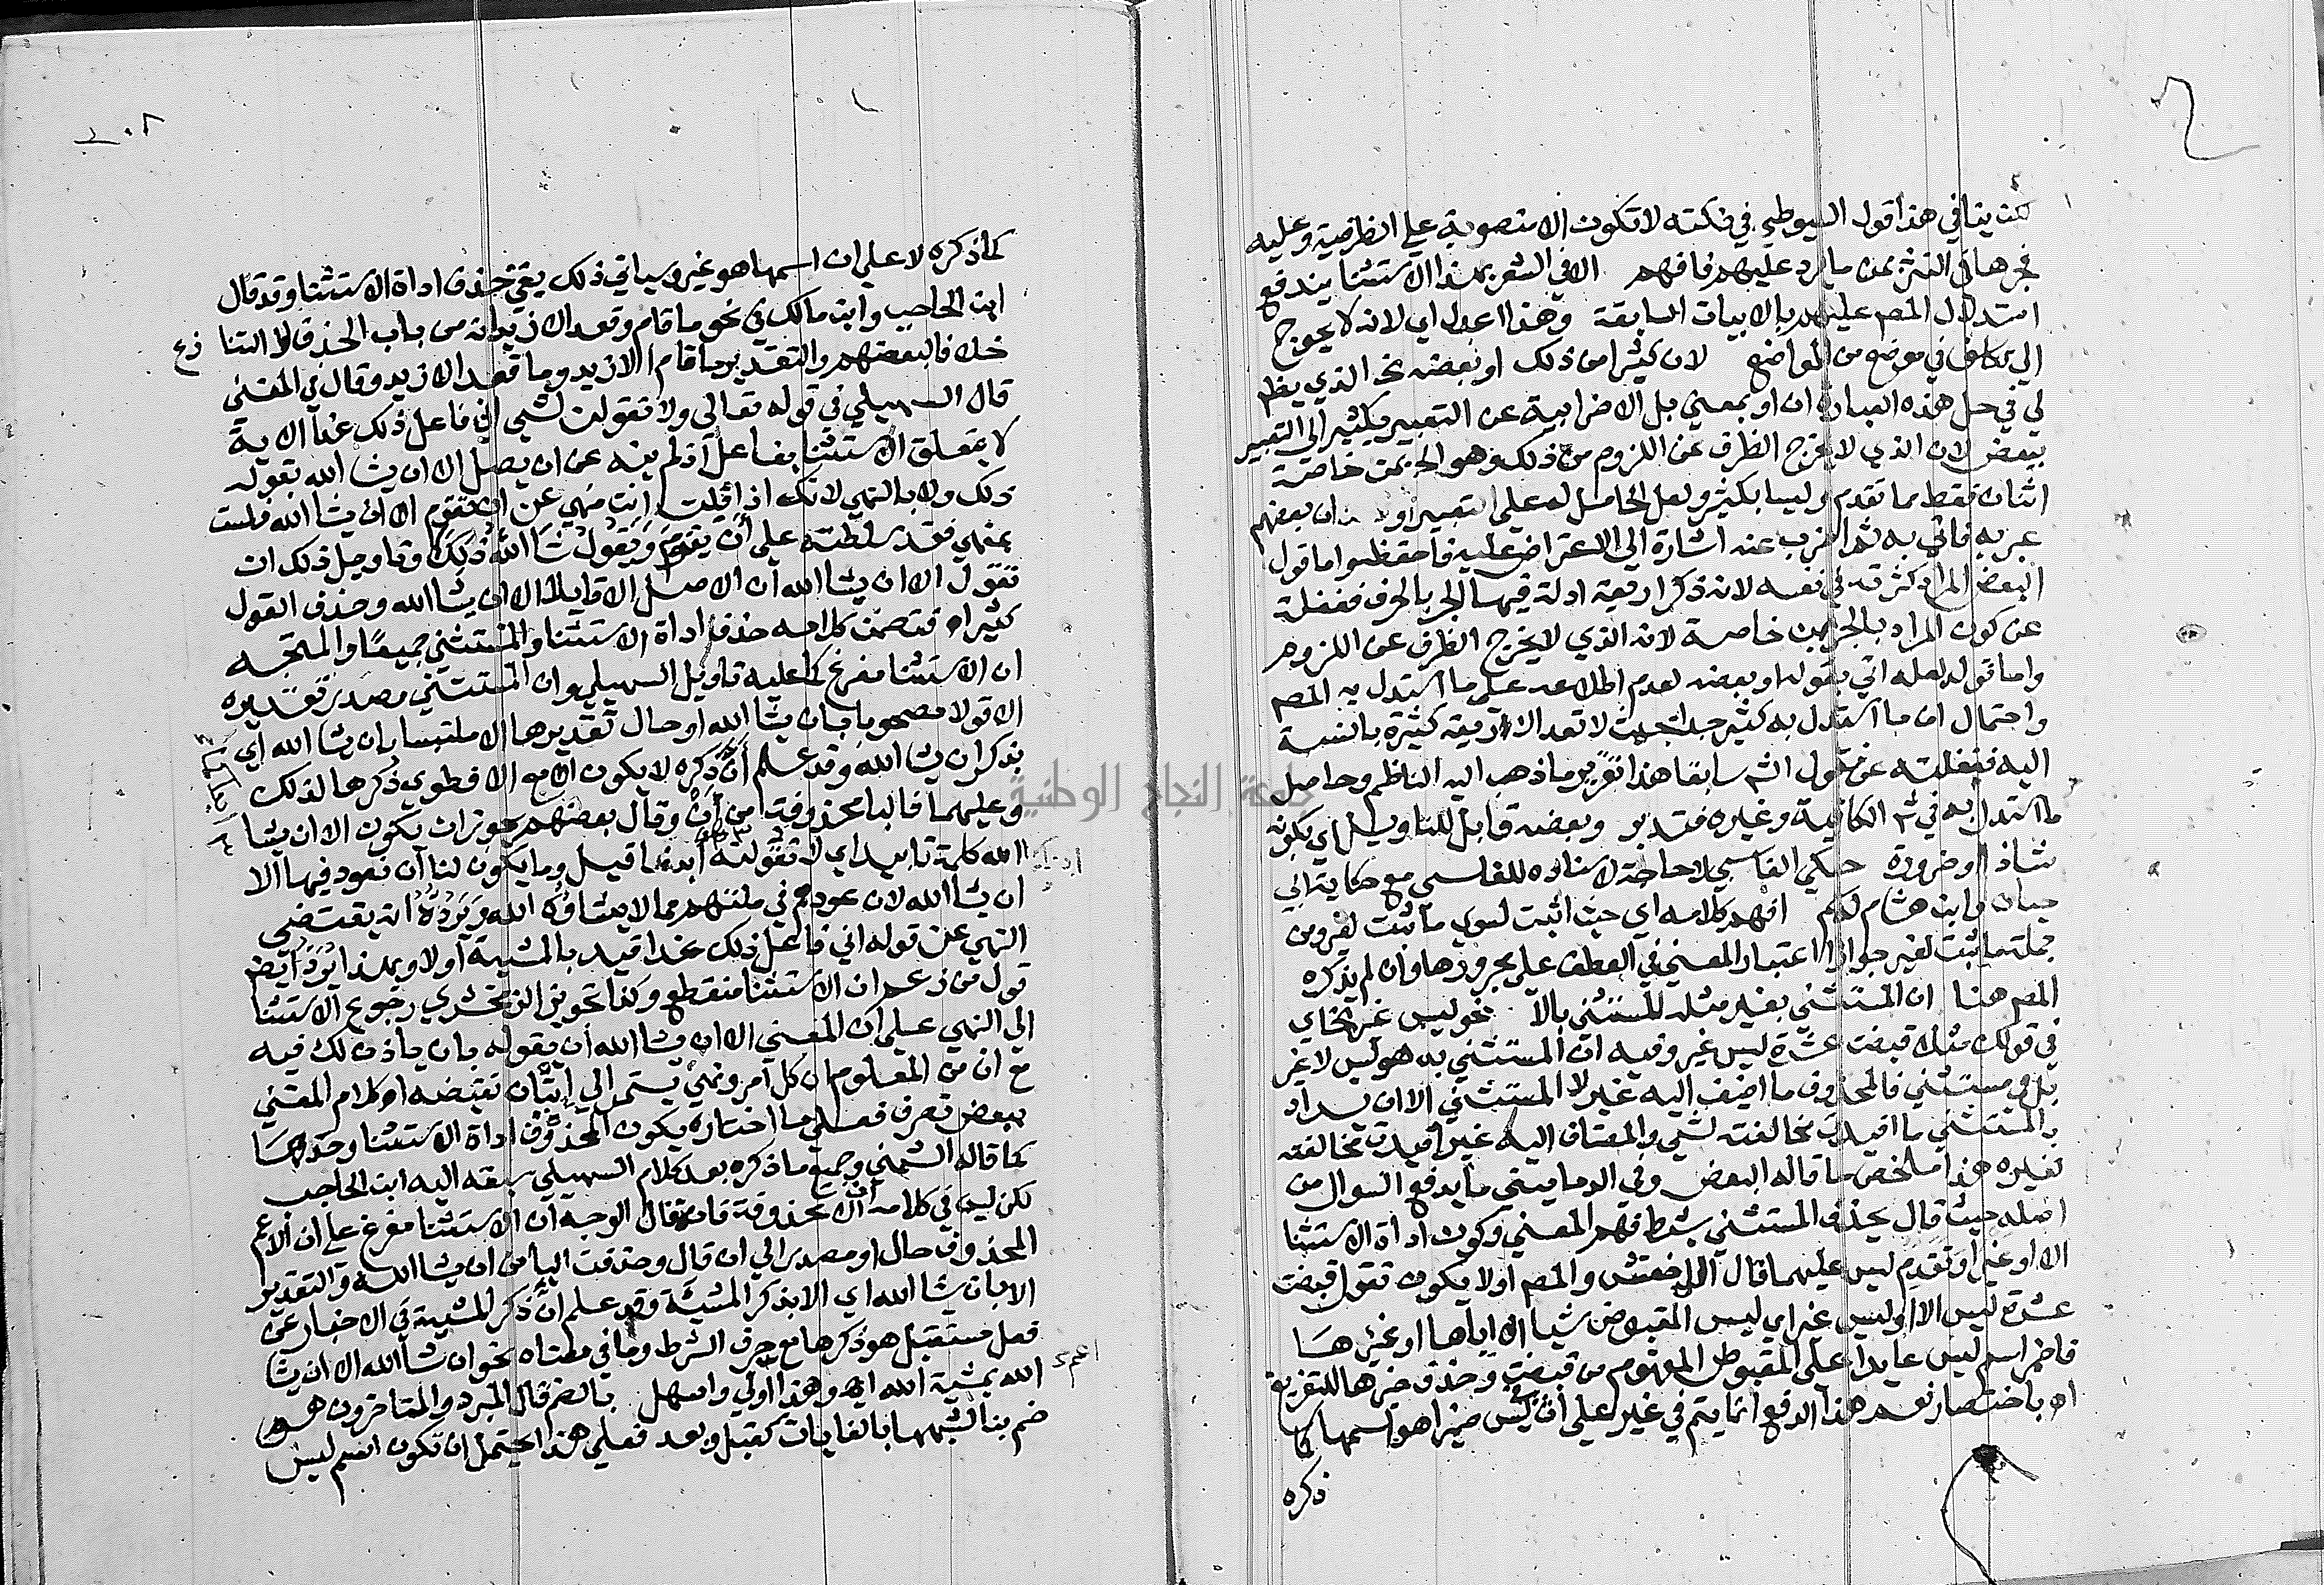 لكن ينافي هذا قول السيوطي في نكته لا تكون الا منصوبة على الظرفية وعليه
فجرها في النثر بمن ما يرد عليهم فافهم الا في الشعر بهذا الاستثنا يندفع
استدلال المصـ عليهم بالابيات السابقة وهذا اعدل اي لانه لا يحوج
الى تكلف في موضع من المواضع لان كثيرا من ذلك او بعضه الخ الذي يظهر
لي في حل هذه العبارة ان او بمعنى بل الاضرابية عن التعبير بكثير الى التعبير
ببعض لان الذي لا يخرج الظرف عن اللزوم من ذلك وهو الجر بمن خاصة
اثنان فقط مما تقدم وليسا بكثير ولعل الحامل له على التعبير اولا ان بعضهم
عبر به فاتى به ثم اضرب عنه اشارة الى الاعتراض عليه فاحفظه واما قول
البعض المراد كثرته في نفسه لانه ذكر اربعة ادلة فيها الجر بالحرف فغفلة
عن كون المراد بالجر بمن خاصة لانه الذي لا يخرج الظرف عن اللزوم
واما قوله لعله اتى بقوله او بعضه لعدم اطلاعه على ما استدل به المصـ
واحتمال ان ما استدل به كثير جدا بحيث لا تعد الاربعة كثيرة بالنسبة
اليه فغفلته عن قول الشـ سابقا هذا تقرير ما ذهب اليه الناظم وحاصل
ما استدل به في شـ الكافية وغيره فتدبر وبعضه قابل للتاويل اي بكونه
شاذا او ضرورة حكي الفاسي لا حاجة لاسناده للفاسي مع حكاية ابي
حيان وابن هشام لهم افهم كلامه اي حيث اثبت لسوى ما ثبت لغير ومن
جملة ما ثبت لغير جواز اعتبار المعنى في العطف على مجرورها وان لم يذكره
المصـ هنا ان المستثنى بغير مثله للمستثنى بالا نحو ليس غير الخ اي
في قولك مثلا قبضت عشرة ليس غير وفيه ان المستثنى به هو ليس لا غير
بل هو مستثنى فالمحذوف ما اضيف اليه غير لا المستثنى الا ان يراد
بالمستثنى ما افيدت مخالفته لشي والمضاف اليه غير افيدت مخالفته
لغيره هذا ملخص ما قاله البعض وفي الدماميني ما يدفع السوال من
اصله حيث قال يحذف المستثنى بشرط فهم المعنى وكون اداة الاستثنا
الا او غير وتقدم ليس عليهما قال الاخفش والمصـ او لا يكون تقول قبضت
عشرة ليس الا او ليس غير اي ليس المقبوض شيا الا اياها او غيرها
فاضمر اسم ليس عايدا على المقبوض المفهوم من قبضت وحذف خبرها للتفريغ
اهـ باختصار نعم هذا الدفع انما يتم في غير على ان في ليس ضميرا هو اسمها كما
ذكره
كما ذكره لا على ان اسمها هو غير وسياتي ذلك بقي حذف اداة الاستثنا وقد قال
ابن الحاجب وابن مالك في نحو ما قام وقعد الا زيد انه من باب الحذف لا التنازع
خلافا لبعضهم والتقدير ما قام الا زيد وما قعد الا زيد وقال في المغني
قال السهيلي في قوله تعالى ولا تقولن لشي اني فاعل ذلك غدا الاية
لا يتعلق الاستثنا بفاعل اذ لم ينه عن ان يصل الا ان يشا الله بقوله
ذلك ولا بالنهي لانك اذا قلت انت منهي عن ان تقوم الا ان يشا الله فلست
بمنهي فقد سلطته على ان يقوم ويقول شا الله ذلك وتاويل ذلك ان
تقول الا ان يشا الله ان الاصل الا قايلا الا ان يشا الله وحذف القول
كثير اهـ فتضمن كلامه حذف اداة الاستثنا والمستثنى جميعا والمتجه
ان الاستثنا مفرغ كما عليه تاويل السهيلي وان المستثنى مصدر تقديره
الا قولا مصحوبا بان يشا الله او حال تقديرها الا ملتبسا بان يشا الله اي
بذكر ان يشا الله وقد علم ان ذكره لا يكون الا مع الا فطوى ذكرها لذلك
وعليهما فالبا محذوفة من ان وقال بعضهم يجوز ان يكون الا ان يشا
الله كلمة تابيد اي لا تقولنه ابدا كما قيل وما يكون لنا ان نعود فيها الا
ان يشا الله لان عودهم في ملتهم مما لا يشاؤه الله ويرده انه يقتضي
النهي عن قوله اني فاعل ذلك غدا قيد بالمشيية او لا وبهذا يرد ايضا
قول من زعم ان الاستثنا منقطع وكذا تجويز الزمخشري رجوع الاستثنا
الى النهي على ان المعنى الا ان يشا الله ان يقوله بان ياذن لك فيه
مع ان من المعلوم ان كل امر ونهي يستمر الى اتيان نقيضه اهـ كلام المغني
ببعض تصرف فعلى ما اختاره يكون المحذوف اداة الاستثنا وحدها
كما قاله الشمني وجميع ما ذكره بعد كلام السهيلي سبقه اليه ابن الحاجب
لكن ليس في كلامه ان الا محذوفة فانه قال الوجه ان الاستثنا مفرغ على ان الاعم
المحذوف حال او مصدر الى ان قال وحذفت البا من ان يشا الله والتقدير
الا بان يشا الله اي الا بذكر المشيية وقد علم ان ذكر المشيية في الاخبار عن
فعل مستقبل هو ذكرها مع حرف الشرط وما في معناه نحو ان شا الله الا ان يشا
الله بمشية الله اهـ وهذا اولى واسهل بالضم قال المبرد والمتاخرون هو
ضم بنا لشبهها بالغايات كقبل وبعد فعلى هذا يحتمل ان تكون اسم ليس